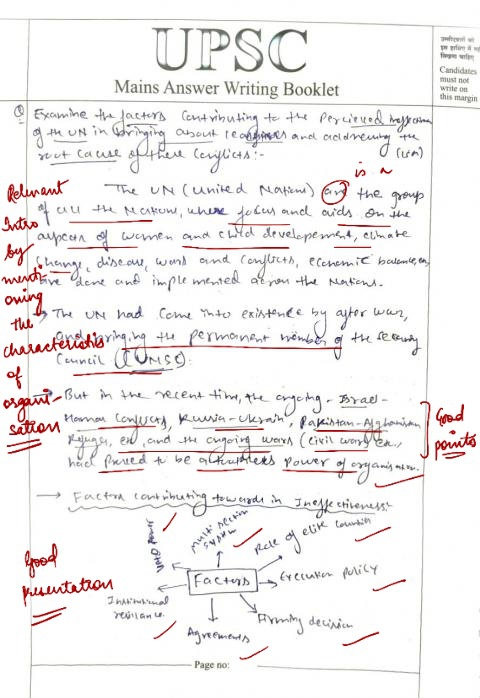 UPSC
Mains Answer Writing Booklet
उम्मीदवारों को
इस हाशिए में नहीं
लिखना चाहिए
Candidates
must not
write on
this margin
Q Examine the factors contributing to the percieved
of the UN in bringing about and addressing the
root cause of these conflicts:-
is a
The UN (United Nations) are the group
of all the Nations, where focus and aids on the
aspects of women and child developement, climate
change, disease, wars and conflicts, economic balance,
are done and implemented across the Nations.
Relevant
Intro
by
menti-
oning
the
characteristics
of
organi-
sation
→ The UN had come into existence by after war,
and bringing the permanent member of the security
Council (UNSC).
→ But in the recent time, the ongoing - Israel-
Hamas Conflicts, Russia-Ukrain, Pakistan-Afghanistan
and the ongoing wars (civil wars
had proved to be a power of organisation.
Good
points
→ Factors contributing towards in Ineffectiveness:
Good
presentation
Factors
Veto Power
Multi section
system
Role of elite countries
Execution policy
Firming decision
Agreements
Institutional
resiliance
Page no: